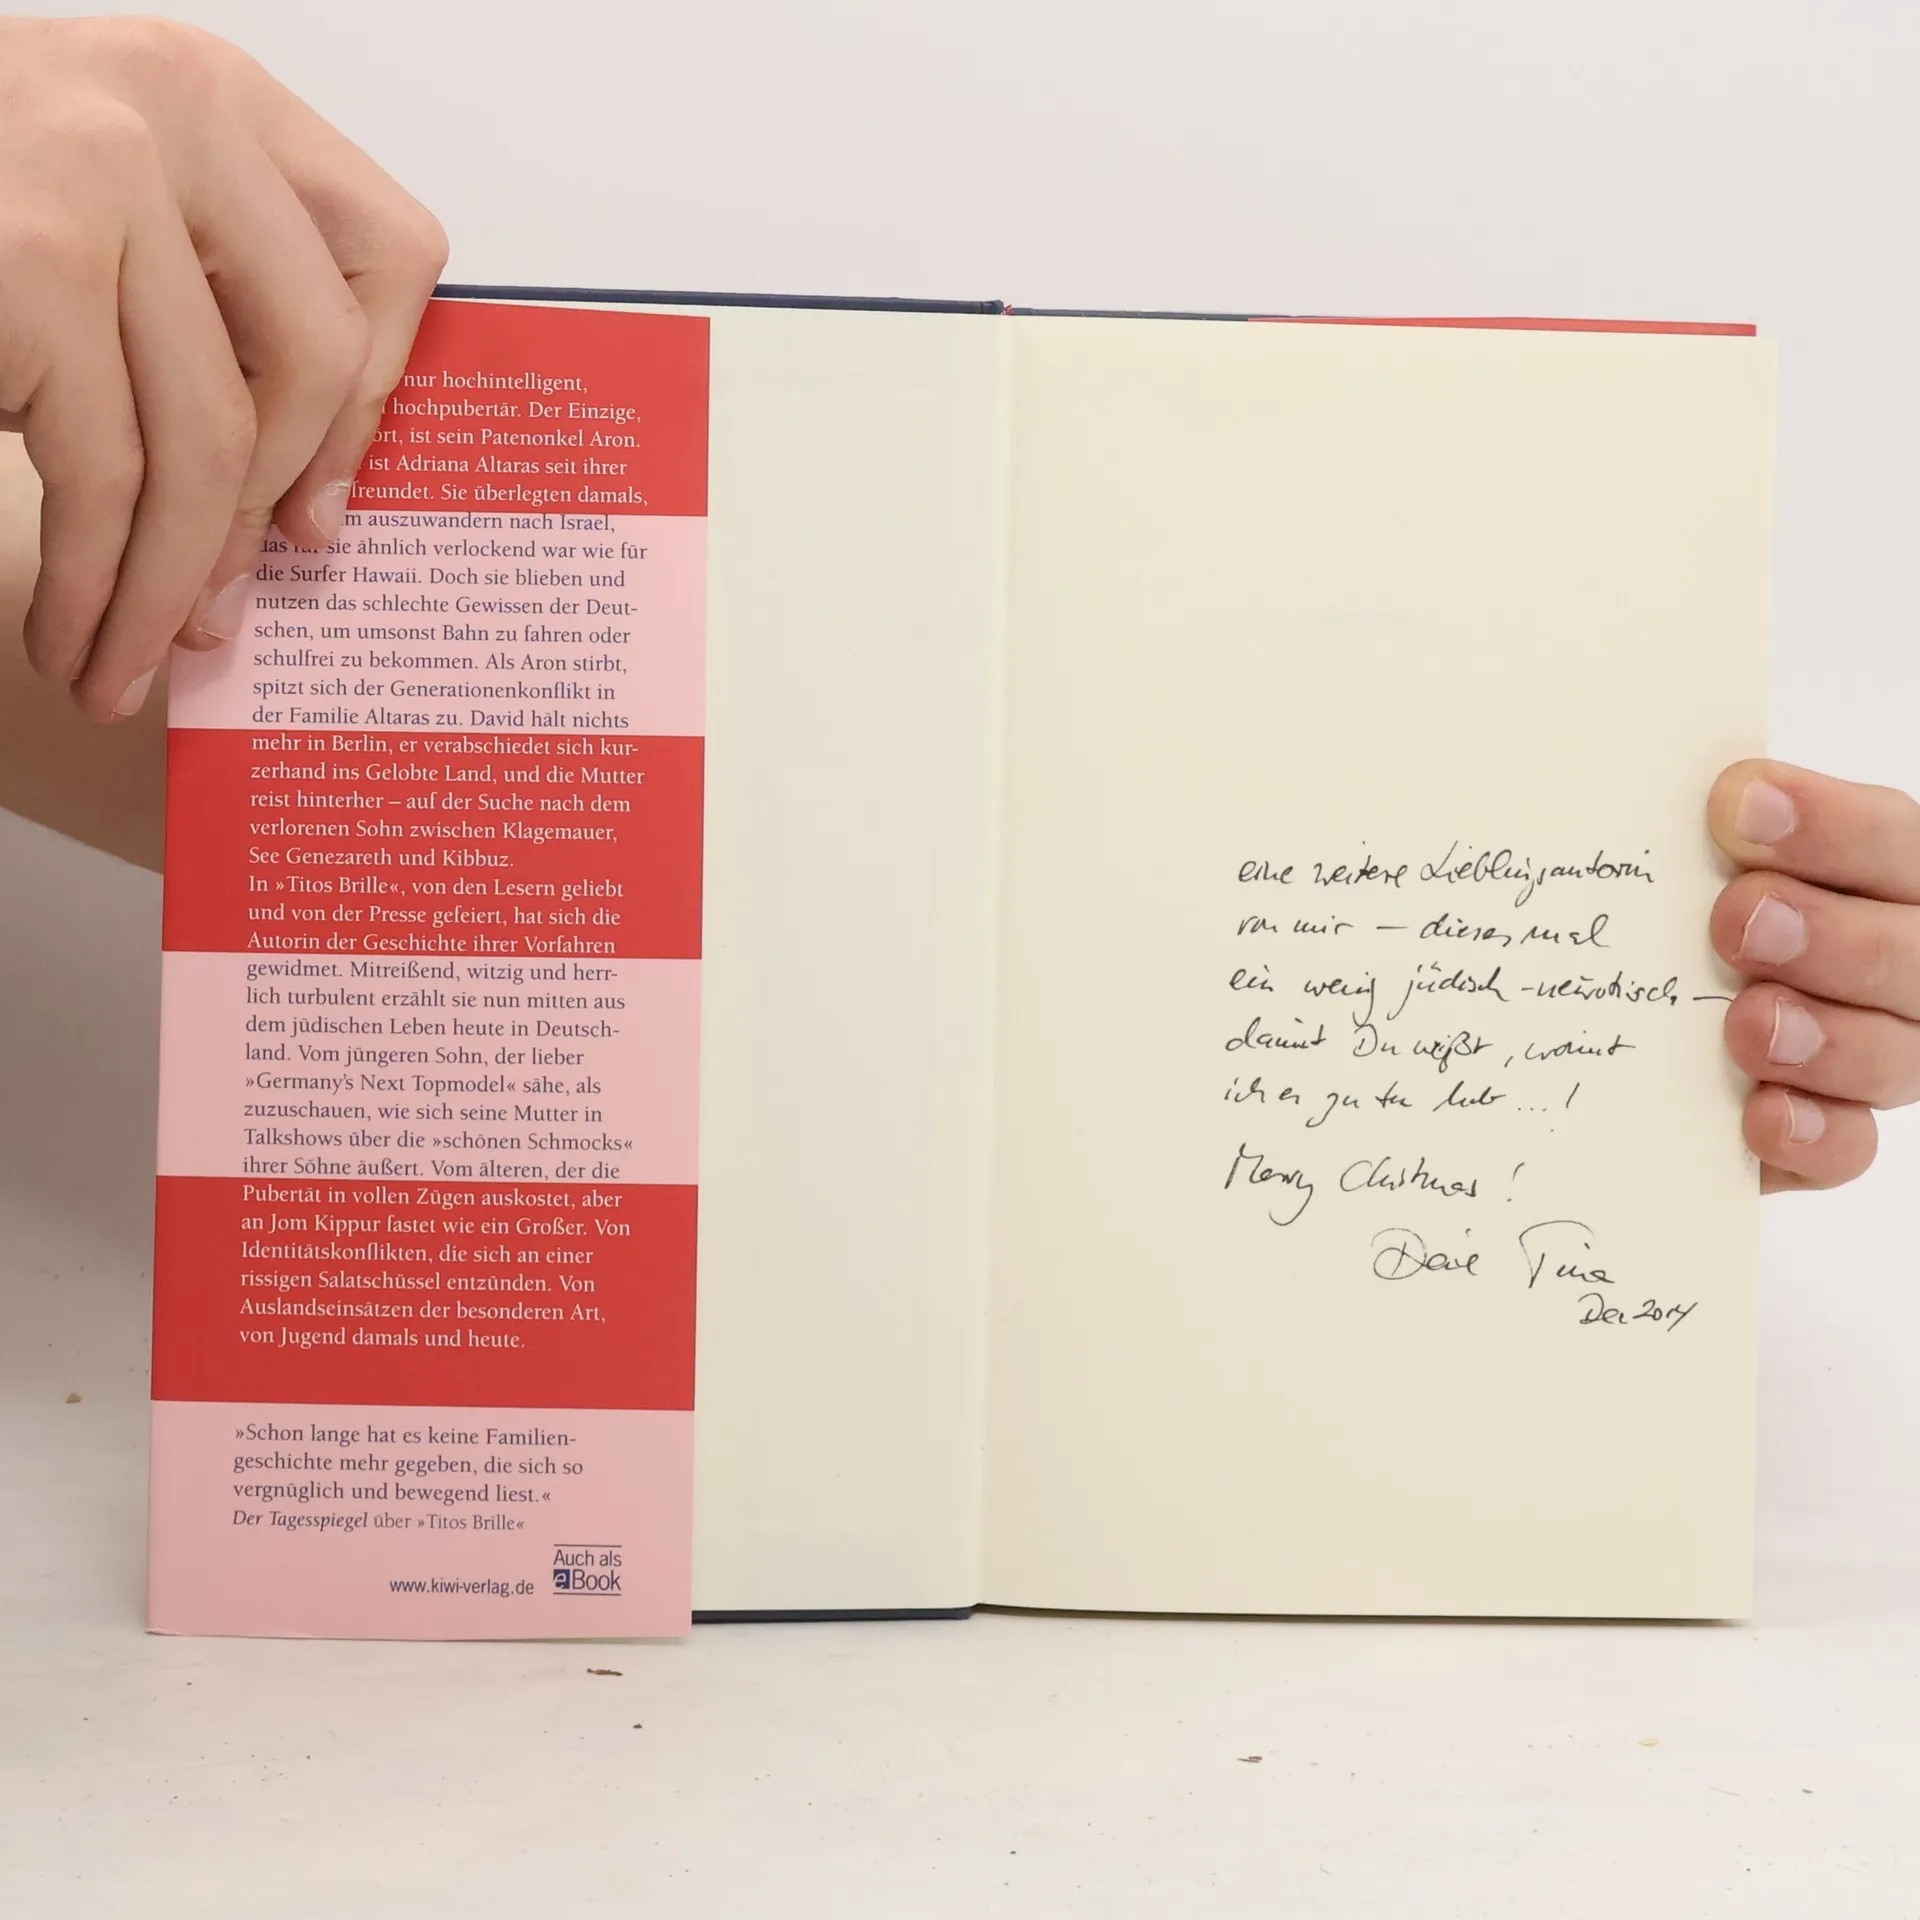 nur hochintelligent,
hochpubertär. Der Einzige,
ört, ist sein Patenonkel Aron.
ist Adriana Altaras seit ihrer
freundet. Sie überlegten damals,
m auszuwandern nach Israel,
das für sie ähnlich verlockend war wie für
die Surfer Hawaii. Doch sie blieben und
nutzen das schlechte Gewissen der Deut-
schen, um umsonst Bahn zu fahren oder
schulfrei zu bekommen. Als Aron stirbt,
spitzt sich der Generationenkonflikt in
der Familie Altaras zu. David hält nichts
mehr in Berlin, er verabschiedet sich kur-
zerhand ins Gelobte Land, und die Mutter
reist hinterher – auf der Suche nach dem
verlorenen Sohn zwischen Klagemauer,
See Genezareth und Kibbuz.
In »Titos Brille«, von den Lesern geliebt
und von der Presse gefeiert, hat sich die
Autorin der Geschichte ihrer Vorfahren
gewidmet. Mitreißend, witzig und herr-
lich turbulent erzählt sie nun mitten aus
dem jüdischen Leben heute in Deutsch-
land. Vom jüngeren Sohn, der lieber
»Germany's Next Topmodel« sähe, als
zuzuschauen, wie sich seine Mutter in
Talkshows über die »schönen Schmocks«
ihrer Söhne äußert. Vom älteren, der die
Pubertät in vollen Zügen auskostet, aber
an Jom Kippur fastet wie ein Großer. Von
Identitätskonflikten, die sich an einer
rissigen Salatschüssel entzünden. Von
Auslandseinsätzen der besonderen Art,
von Jugend damals und heute.
»Schon lange hat es keine Familien-
geschichte mehr gegeben, die sich so
vergnüglich und bewegend liest.«
Der Tagesspiegel über »Titos Brille«
www.kiwi-verlag.de
Auch als
eBook
eine weitere Lieblingsautorin
von mir – dieses mal
ein wenig jüdisch-neurotisch –
damit Du weißt, womit
ich es zu tun hab ...!
Merry Christmas!
Deine Tina
Dez 2014